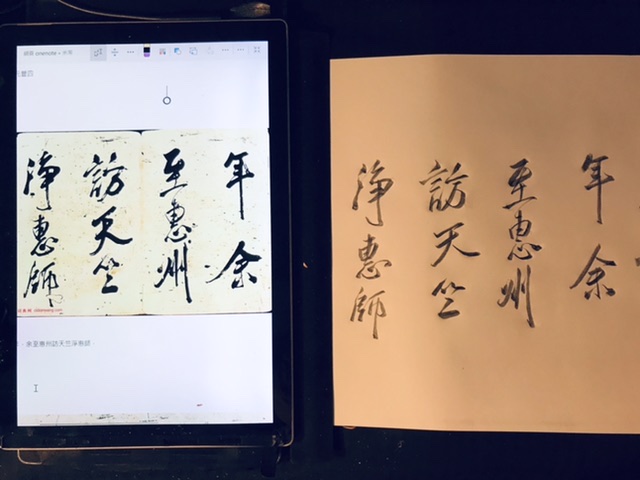 年余
至惠州
訪天竺
淨惠師
余至惠州訪天竺淨惠師
年余
至惠州
訪天竺
淨惠師